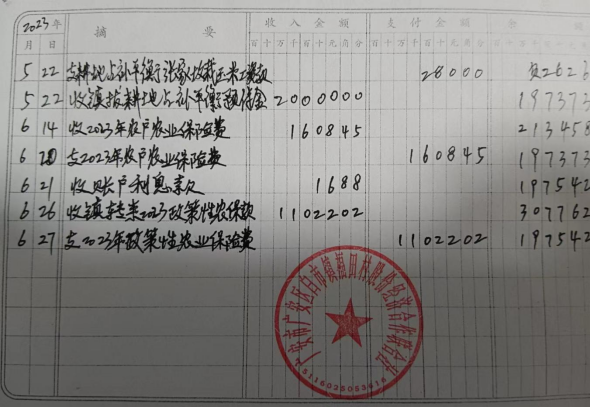 2023年 摘 要 收入金额 支付金额 余 额
月 日 百十万千百十元角分 百十万千百十元角分
5 22 支耕地占补平衡 28000 负2626
5 22 收镇拨耕地占补平衡预借金 2000000 197373
6 14 收2023年农户农业保险费 160845 213458
6 20 支2023年农户农业保险费 160845 197373
6 21 收账户利息款 1688 197542
6 26 收镇转来2023政策性农保款 1102202 307762
6 27 支2023年政策性农业保险费 1102202 197542
广安市广安区白市镇 田村股份经济合作联合社